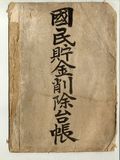 國民貯金削除台帳